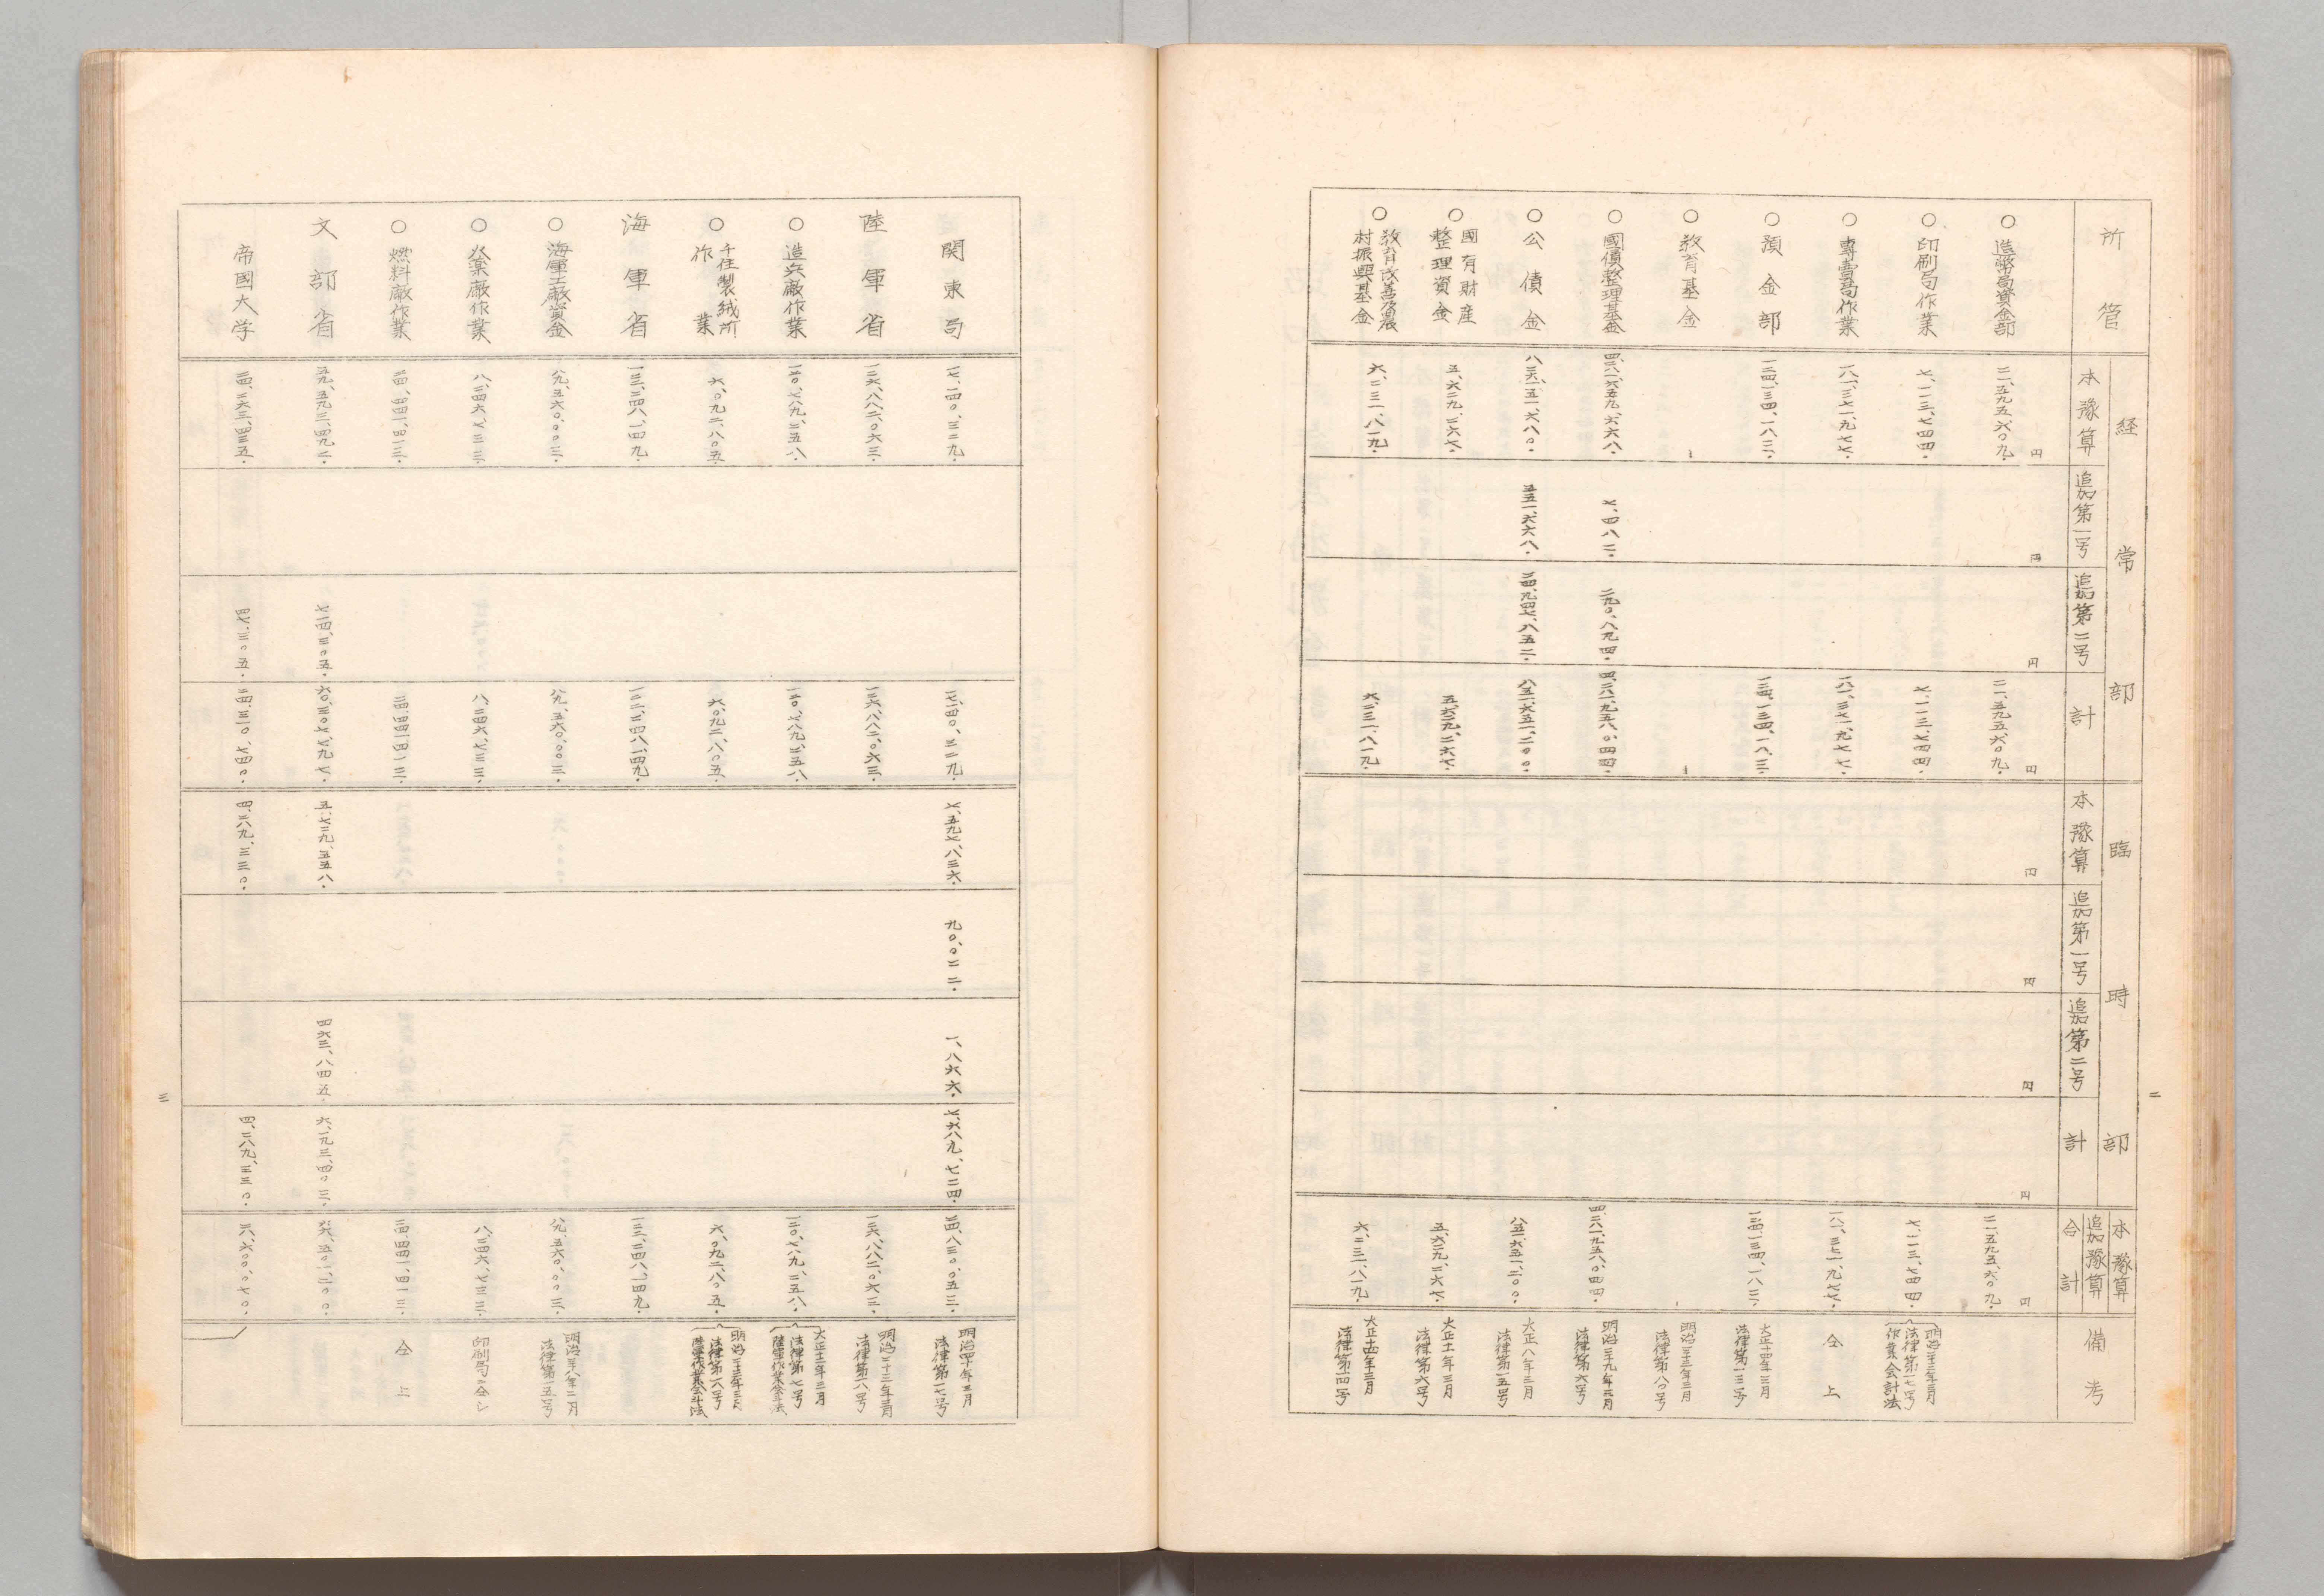 所管
経常部
本豫算
追加第一号
追加第二号
計
臨時部
本豫算
追加第一号
追加第二号
計
本豫算
追加豫算
合計
備考
円
円
円
円
円
円
円
円
円
○造幣局資金部
二一、五九五、六〇九.
二一、五九五、六〇九.
二一、五九五、六〇九.
○印刷局作業
七、一一三、七四四.
七、一一三、七四四.
七、一一三、七四四.
明治二十三年三月
法律第一七号
作業会計法
○專賣局作業
一八一、三七一、九七七.
一八一、三七一、九七七.
一八一、三七一、九七七.
仝上
○預金部
一三四、一三四、一八三.
一三四、一三四、一八三.
一三四、一三四、一八三.
大正十四年三月
法律第一三号
○教育基金
明治三二年三月
法律第八〇号
○國債整理基金
四、二八一、六五九、六六八.
七、四八二.
二九〇、八九四.
四、二八一、九五八、〇四四.
四、二八一、九五八、〇四四.
明治三十九年三月
法律第六号
○公債金
八二六、一五一、六八〇.
五五一、六六八.
二四、九四七、八五二.
八五一、六五一、二〇〇.
八五一、六五一、二〇〇.
大正八年三月
法律第一五号
○國有財産
整理資金
五、六二九、二六七.
五、六二九、二六七.
五、六二九、二六七.
大正十一年三月
法律第六号
○教育改善及農
村振興基金
六、二三一、八一九.
六、二三一、八一九.
六、二三一、八一九.
大正十四年三月
法律第一四号
二
関東局
一七、一四〇、三二九.
一七、一四〇、三二九.
七、五九七、八三六.
九〇、〇二二.
一、八六六.
七、六八九、七二四.
二四、八三〇、〇五三.
明治四十年三月
法律第一七号
陸軍省
一二六、八八二、〇六三.
一二六、八八二、〇六三.
一二六、八八二、〇六三.
明治二十三年三月
法律第一八号
○造兵廠作業
一二〇、七八九、二五八.
一二〇、七八九、二五八.
一二〇、七八九、二五八.
大正十二年三月
法律第七号
陸軍作業会計法
○千住製絨所
作業
六、〇九二、八〇五.
六、〇九二、八〇五.
六、〇九二、八〇五.
明治二十三年三月
法律第一八号
陸軍作業会計法
海軍省
一二二、二四八、一四九.
一二二、二四八、一四九.
一二二、二四八、一四九.
○海軍工廠資金
八九、五六〇、〇〇三.
八九、五六〇、〇〇三.
八九、五六〇、〇〇三.
明治三十八年二月
法律第一五号
○火薬廠作業
八、二四六、七三三.
八、二四六、七三三.
八、二四六、七三三.
印刷局ニ仝シ
○燃料廠作業
二四、四四一、四一三.
二四、四四一、四一三.
二四、四四一、四一三.
仝上
文部省
五九、五九三、四九二.
七一四、三〇五.
六〇、三〇七、七九七.
五、七二九、五五八.
四六三、八四五.
六、一九三、四〇三.
六六、五〇一、二〇〇.
帝國大学
二四、二六三、四三五.
四七、三〇五.
二四、三一〇、七四〇.
四、二八九、三三〇.
四、二八九、三三〇.
二八、六〇〇、〇七〇.
三